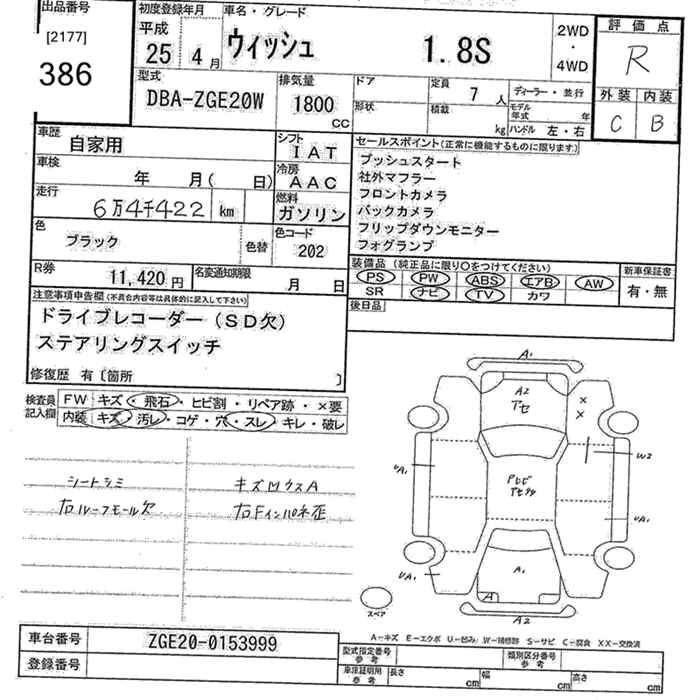 出品番号
[2177]
386
初度登録年月
平成
25 4月
車名・グレード
ウィッシュ 1.8S
2WD
・
4WD
評価点
R
外装 内装
C B
型式
DBA-ZGE20W
排気量
1800
CC
ドア
形状
定員 7人
積載 kg
ディーラー・並行
モデル年式 年
ハンドル 左・右
車歴
自家用
シフト
IAT
車検
年 月( 日)
冷房
AAC
走行
6万4千422 km
燃料
ガソリン
色
ブラック
色替
色コード
202
R券
11,420円
名変通知期限
月 日
セールスポイント(正常に機能するものに限ります)
プッシュスタート
社外マフラー
フロントカメラ
バックカメラ
フリップダウンモニター
フォグランプ
装備品(純正品に限り○をつけてください)
PS PW ABS エアB AW
SR ナビ TV カワ
新車保証書
有・無
後日品
注意事項申告欄(不具合内容等は具体的に記入して下さい)
ドライブレコーダー(SD欠)
ステアリングスイッチ
修復歴 有〔箇所 〕
検査員記入欄
FW キズ・飛石・ヒビ割・リペア跡・×要
内装 キズ・汚レ・コゲ・穴・スレ・キレ・破レ
シートシミ
右ルーフモール欠
キズ凹ウスA
右Fインパネ歪
A1
A2
アセ
×
×
W2
UA1
UA1
UA1
A1
A
A2
スペア
A－キズ E－エクボ U－凹み W－補修跡 S－サビ C－腐食 XX－交換済
車台番号
ZGE20-0153999
登録番号
型式指定番号
参考
類別区分番号
参考
車庫証明用
参考
長さ cm 幅 cm 高さ cm